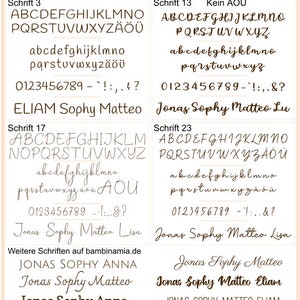 Schrift 3
ABCDEFGHIJKLMNO
PQRSTUVWXYZÄÖÜ
abcdefghijklmno
pqrstuvwxyzäöü
0123456789 -`!:,.&?
ELIAM Sophy Matteo
Schrift 13 Kein AOU
ABCDEFGHIJKLMNO
PQRSTUVWXYZ
abcdefghijklmno
pqrstuvwxyz
0123456789-`!:,.&?
Jonas Sophy Matteo Lu
Schrift 17
ABCDEFGHIJKLM
NOPQRSTUVWXYZ
abcdefghijklmno
pqrstuvwxyzäöü AOU
0123456789 -!:..&?
Jonas Sophy Matteo Lisa
Schrift 23
ABCDEFGHIJKLMNO
PQRSTUVWXYZÄÖÜ
abcdefghijklmno
pqrstuvwxyzäöü
0123456789 -'!:,.&?
Jonas Sophy Matteo Lisa
Weitere Schriften auf bambinamia.de
Jonas Sophy Anna
Jonas Sophy Matteo
Jonas Sophy Anna
Jonas Sophy Matteo
Jonas Sophy Matteo Eliam
JONAS SOPHY MATTEO ELIAM